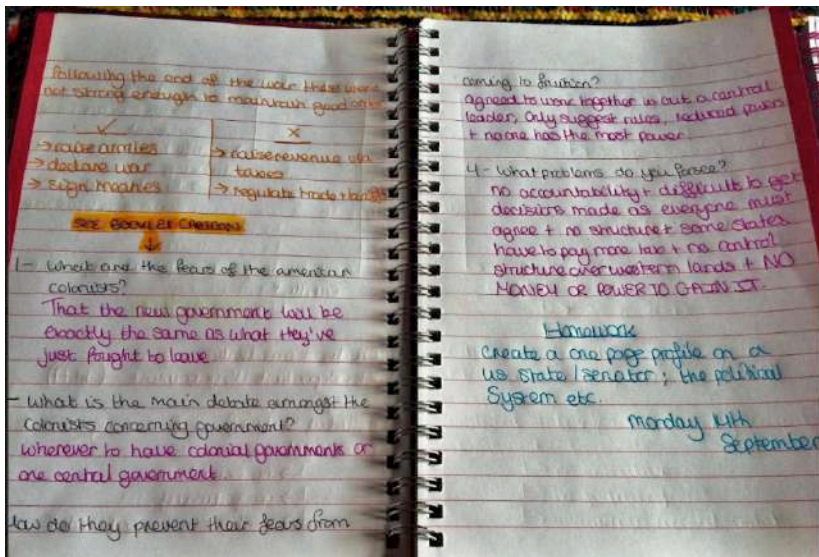 Following the end of the war these were
not strong enough to maintain good order
✓
→ raise armies
→ declare war
→ sign
X
→ raise revenue via
taxes
→ regulate trade +
SEE BOOKLET CARTOON
↓
1- What are the fears of the american
colonists?
That the new government will be
exactly the same as what they've
just fought to leave
- What is the main debate amongst the
colonists concerning government?
wherever to have colonial governments or
one central government
How do they prevent their fears from
coming to fruition?
agreed to work together w out a central
leader, Only suggest rules, reduced powers
+ no one has the most power.
4- What problems do you forsee?
no accountability + difficult to get
decisions made as everyone must
agree + no structure + some states
have to pay more tax + no control
structure over western lands + NO
MONEY OR POWER TO GAIN IT.
Homework
Create a one page profile on a
us state/senator; the political
System etc.
monday 14th
September